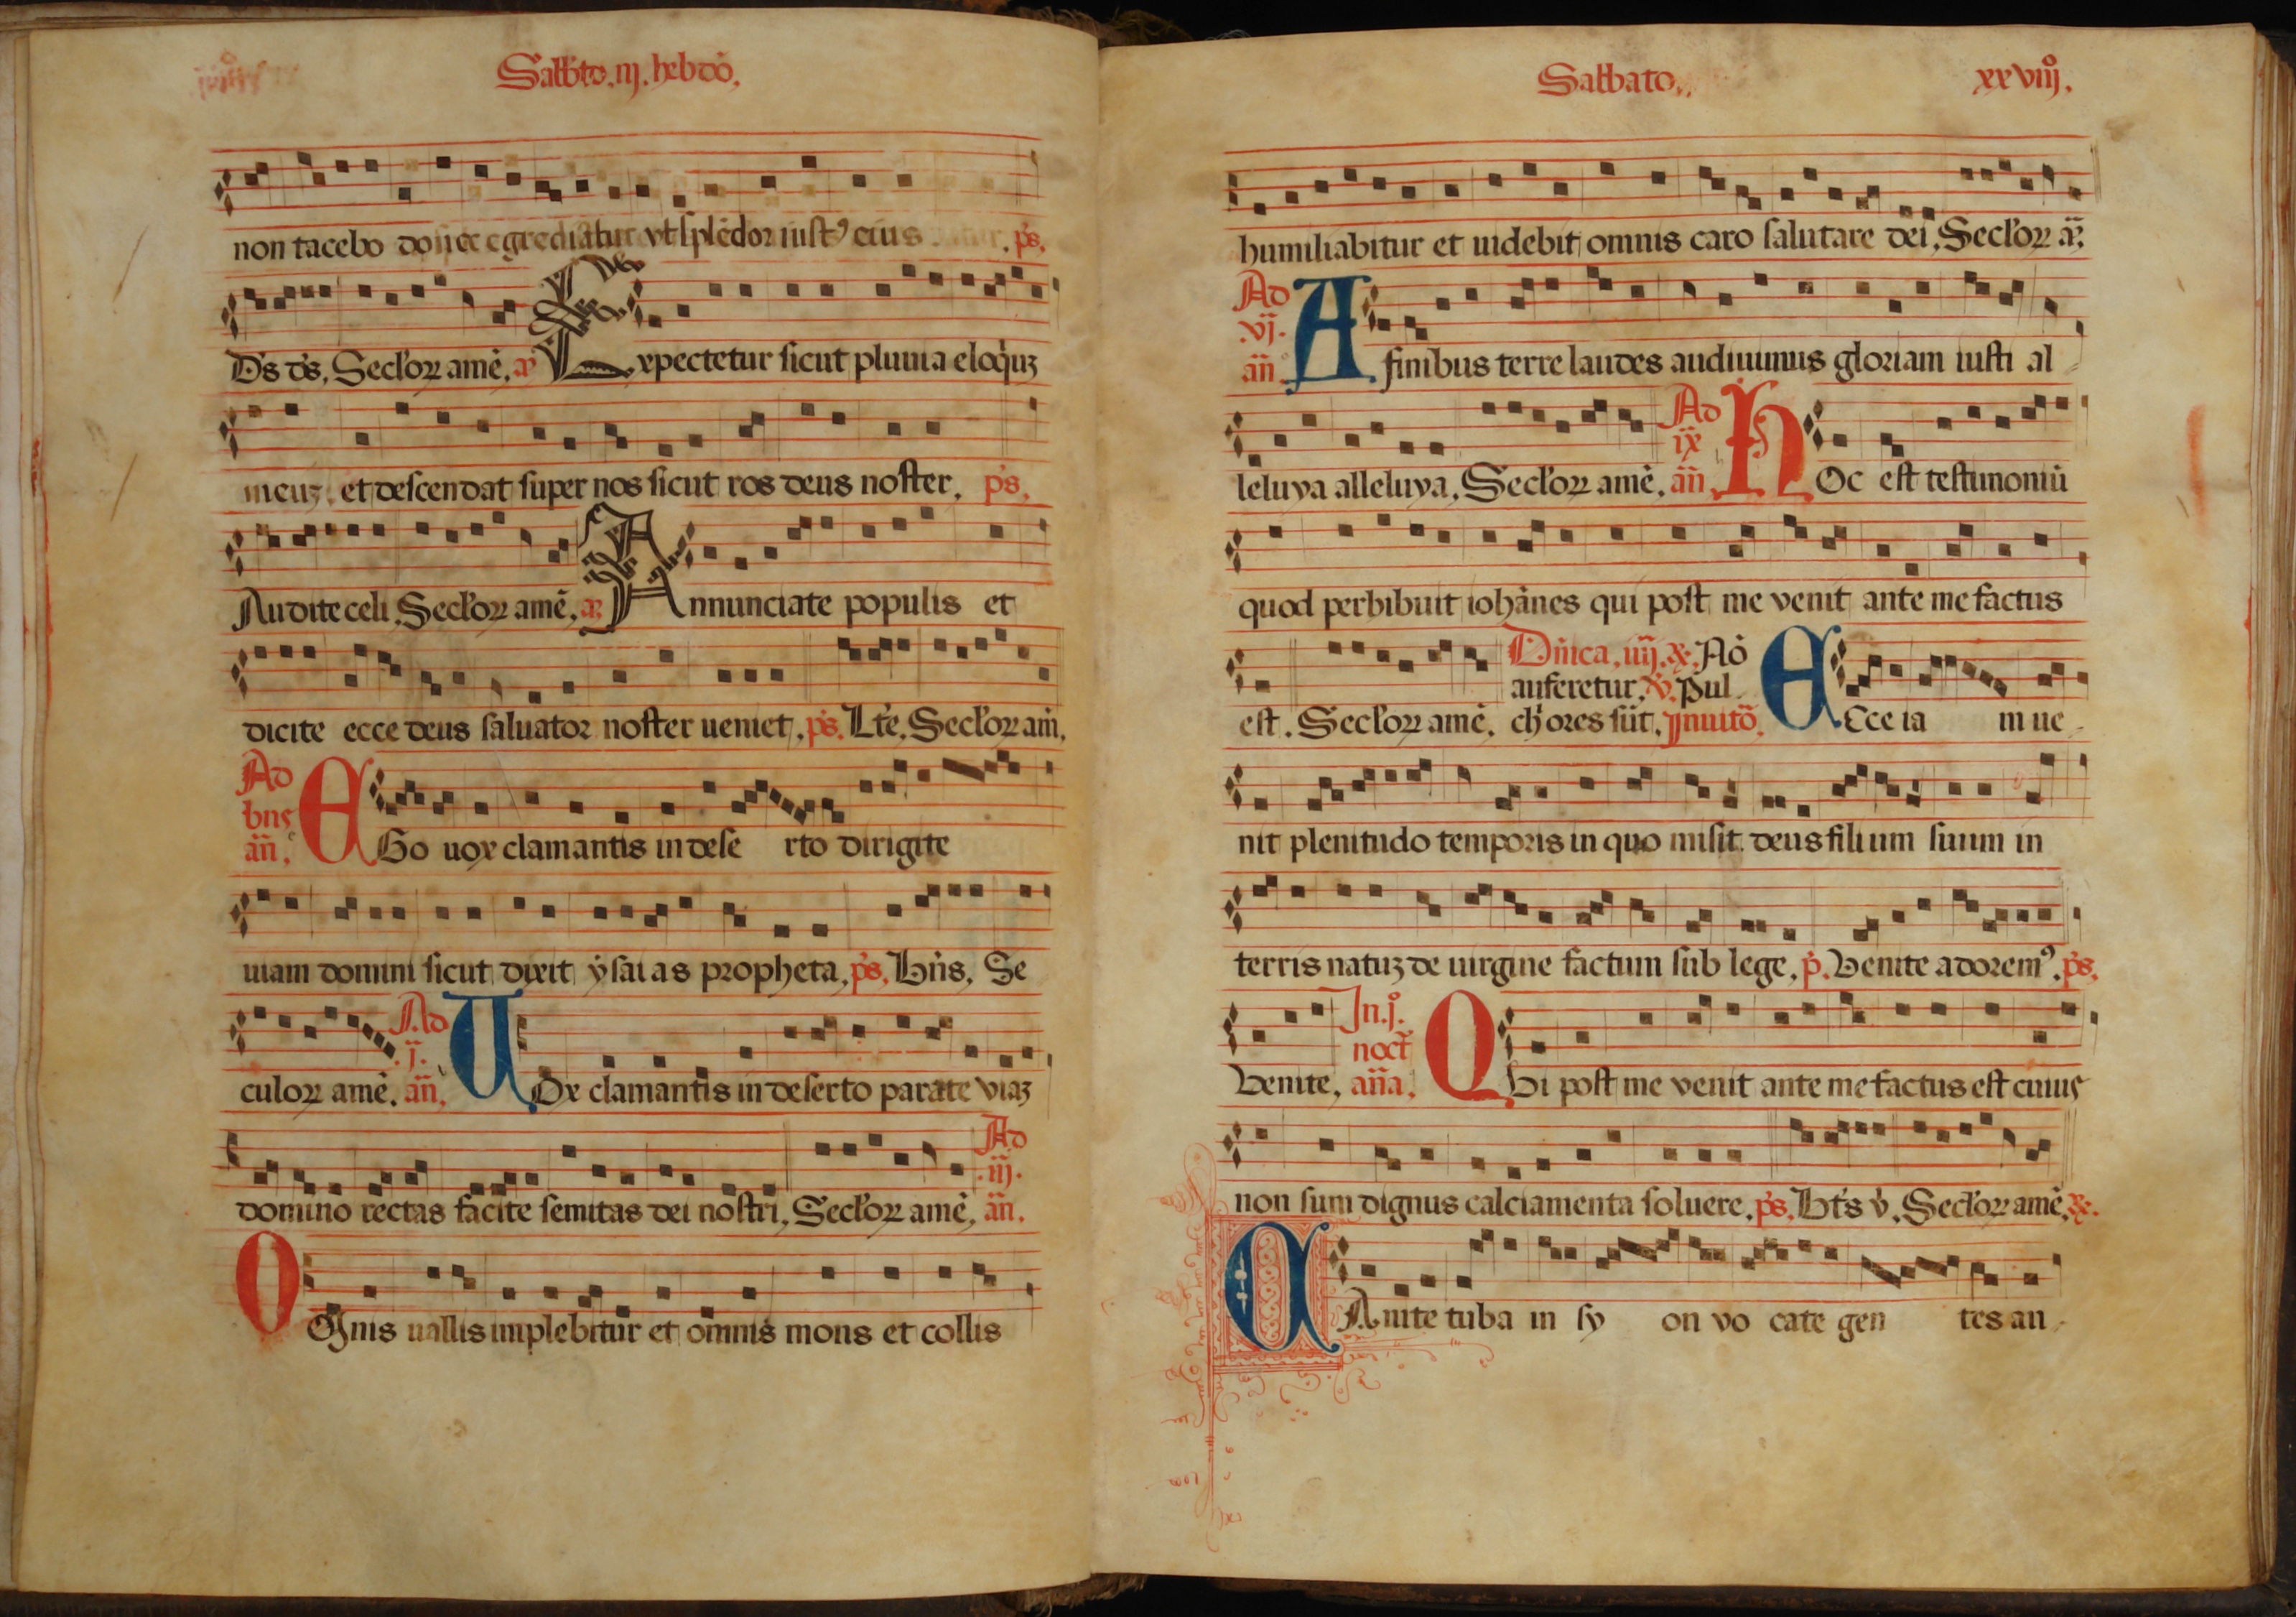 Sabbto. iij. hebdo.
non tacebo donec egrediatur ut splēdor iustꝰ eius ps.
Ds ds. Seclorꝝ amē. aꝰ Expectetur sicut pluuia eloq̇uꝫ
meuꝫ et descendat super nos sicut ros deus noster. ps.
Audite celi. Seclorꝝ amē. a Annunciate populis et
dicite ecce deus saluator noster ueniet. ps. Lt̄e. Seclorꝝ am̄.
Ad bn̄s an̄. EGo uox clamantis in dese rto dirigite
uiam domini sicut dixit ẏsaias propheta. ps. Bn̄s. Se
culorꝝ amē. Ad .j. an̄. UOx clamantis in deserto parate viaꝫ
domino rectas facite semitas dei nostri. Seclorꝝ amē. Ad .iij. an̄.
OMnis uallis implebitur et omnis mons et collis
Sabbato. xxviiij.
humiliabitur et uidebit omnis caro salutare dei. Seclorꝝ a
Ad .vj. an̄. A finibus terre laudes audiuimus gloriam iusti al
leluya alleluya. Seclorꝝ amē. Ad ix an̄. HOc est testimoniū
quod perhibuit iohānes qui post me venit ante me factus
est. Seclorꝝ amē. Dn̄ica. iiij. ꝶ. Nō auferetur. ꝟ. Pulchores sūt. Jnuitō. ECce ia m ue
nit plenitudo temporis in quo misit deus filium suum in
terris natuꝫ de uirgine factum sub lege. p. Venite adoremꝰ. ps.
Venite. In. j. noct̄ an̄a. QUi post me venit ante me factus est cuiuꝰ
non sum dignus calciamenta soluere. ps. Bt̄s v. Seclorꝝ amē. ꝶ.
CAnite tuba in sy on vo cate gen tes an